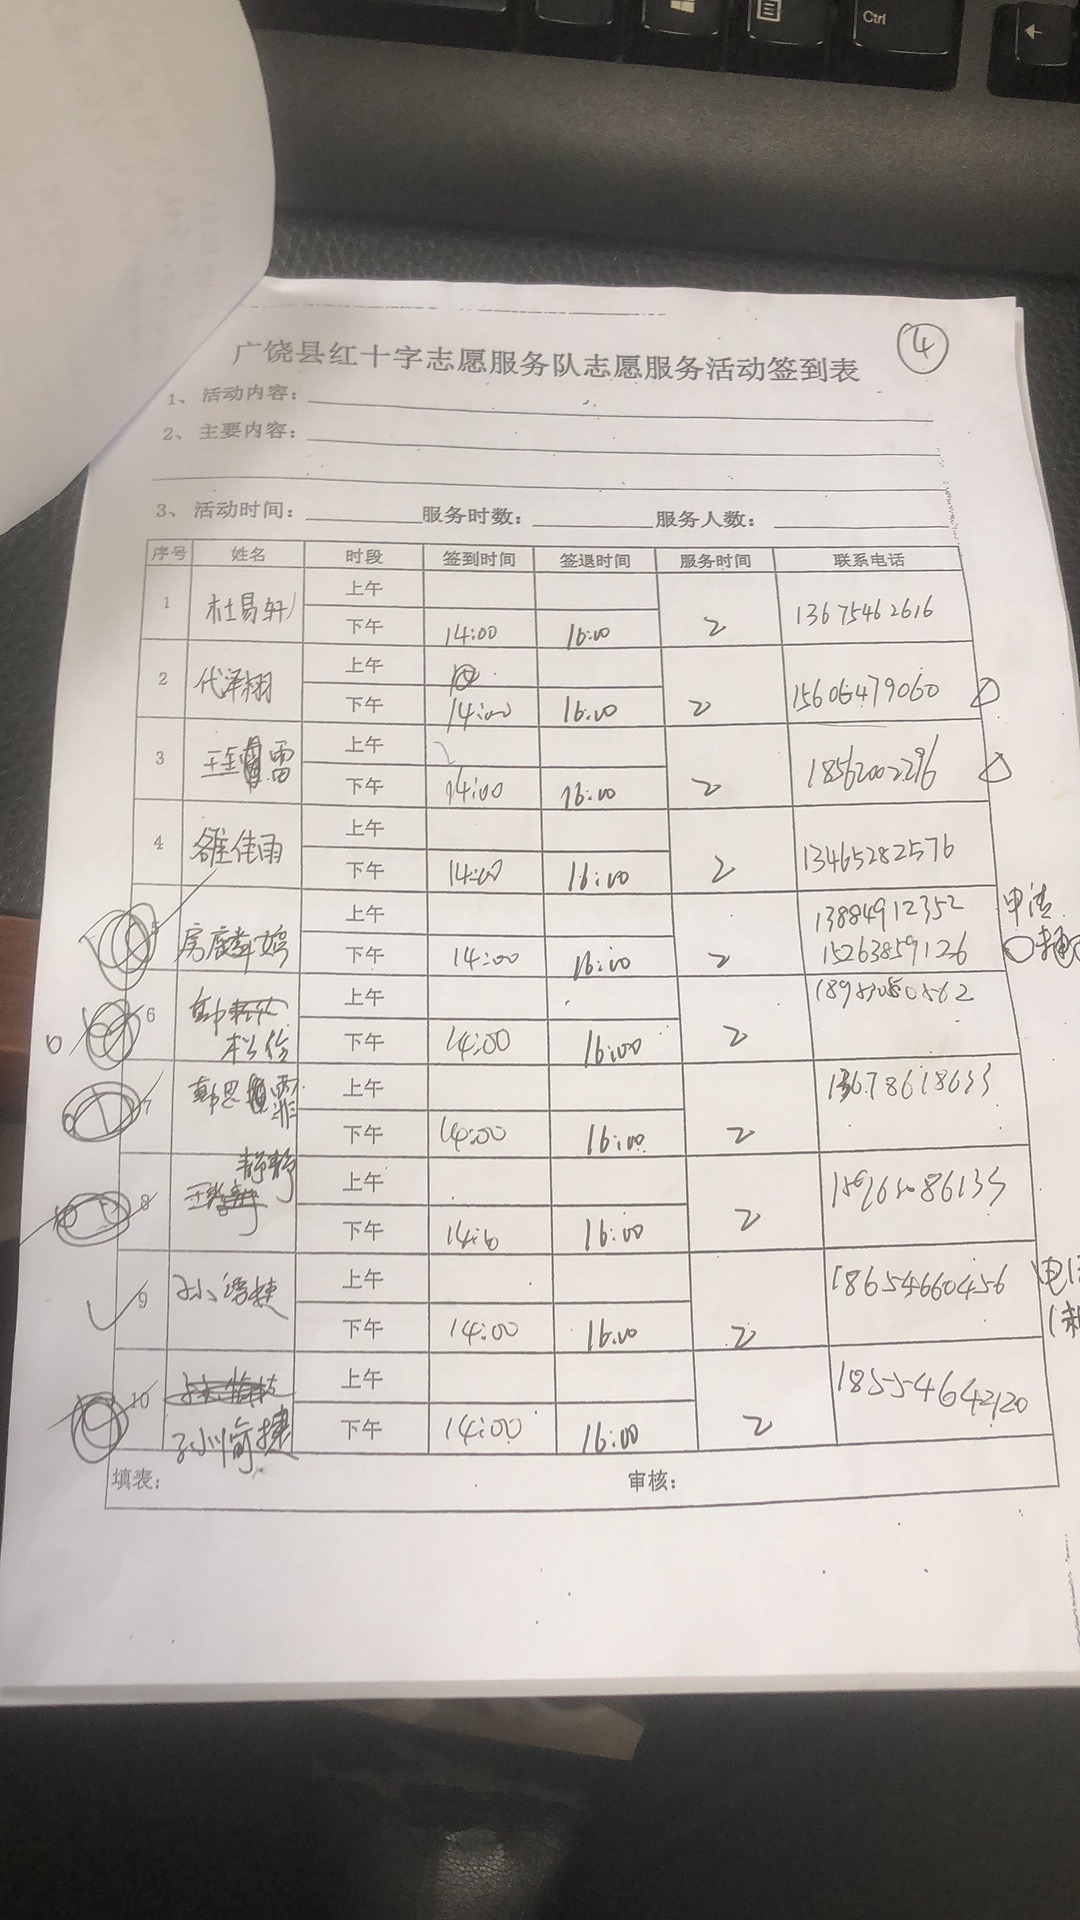 Ctrl
4
广饶县红十字志愿服务队志愿服务活动签到表
1、活动内容：
2、主要内容：
3、活动时间： 服务时数： 服务人数：
序号 姓名 时段 签到时间 签退时间 服务时间 联系电话
1 杜易轩 上午
下午 14:00 16:00 2 13675462616
2 代泽栩 上午
下午 14:00 16:00 2 15605479060
3 王 雷 上午
下午 14:00 16:00 2 18562002296
4 雒佳雨 上午
下午 14:00 16:00 2 13465282576
5 房麟 上午 13884912352 申请
下午 14:00 16:00 2 15263859126
6 韩 上午
松 下午 14:00 16:00 2
7 韩思 上午
下午 14:00 16:00 2
8 静静 上午
王 下午 14:00 16:00 2
9 孙 捷 上午 18654660456 电
下午 14:00 16:00 2
10 上午 18554642120
孙 捷 下午 14:00 16:00 2
填表： 审核：